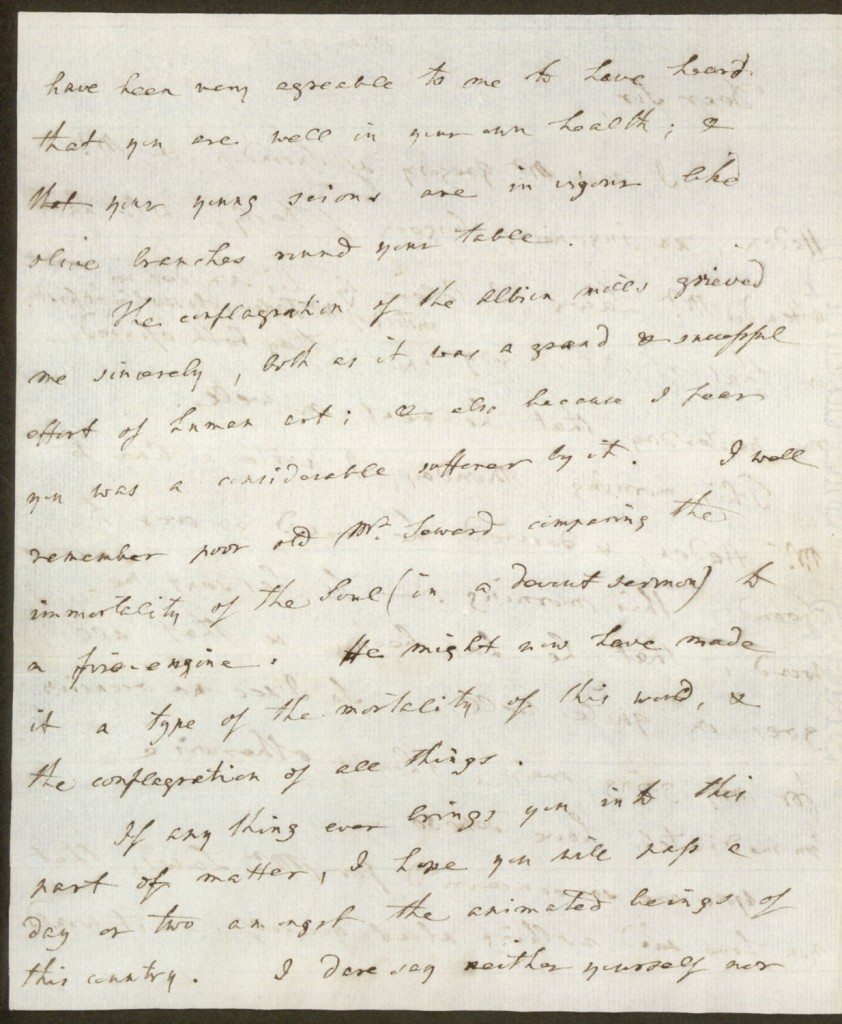 have been very agreeable to me to have heard
that you are well in your own health; &
that your young scions are in vigour like
olive branches round your table.
The conflagration of the Albion mills grieved
me sincerely, both as it was a grand & successful
effort of human art; & also because I fear
you was a considerable sufferer by it. I well
remember poor old Mr. Seward comparing the
immortality of the Soul (in a devout sermon) to
a fire-engine. He might now have made
it a type of the mortality of this world, &
the conflagration of all things.
If any thing ever brings you into this
part of matter, I hope you will pass a
day or two amongst the animated beings of
this country. I dare say neither yourself nor